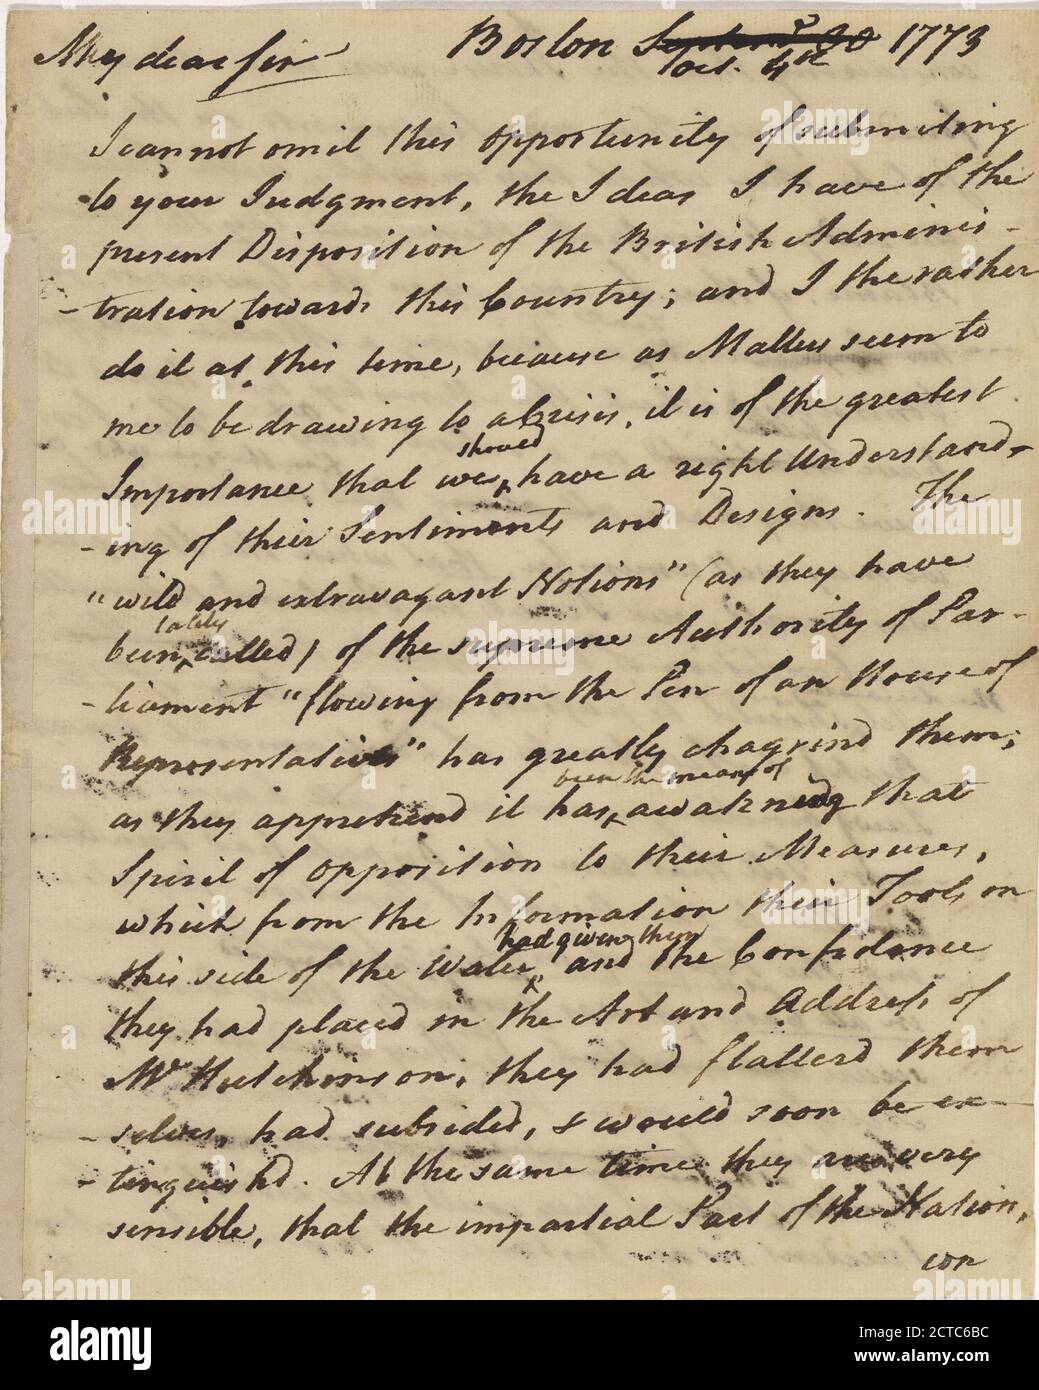 My dear sir Boston Septemr 30 1773
Oct. 4th
I cannot omit this opportunity of submitting
to your Judgment, the Ideas I have of the
present Disposition of the British Adminis-
-tration towards this Country; and I the rather
do it at this time, because as Matters seem to
me to be drawing to a Crisis, it is of the greatest
shoud
Importance that we ‸ have a right Understand-
-ing of their Sentiments and Designs. The
"wild and extravagant Notions" (as they have
lately
been ‸ called) of the supreme Authority of Par-
-liament "flowing from the Pen of an House of
Representatives" has greatly chagrind them;
been the means of
as they apprehend it has ‸ awakning that
Spirit of opposition to their Measures,
which from the Information their Tools on
had giving them
this side of the Water ‸ and the Confidence
they had placed in the Art and Address of
Mr Hutchinson, they had flatterd them
-selves, had subsided, & would soon be ex-
-tinguishd. At the same time they are very
sensible, that the impartial Part of the Nation,
con
a alamy
alamy
Image ID: 2CTC6BC
www.alamy.com